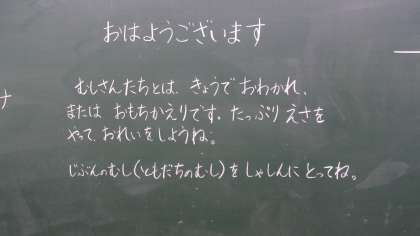 おはようございます
むしさんたちとは、きょうでおわかれ、
または おもちかえりです。たっぷり えさを
やって、おれいをしようね。
じぶんのむし(ともだちのむし)を しゃしんに とってね。
ナ